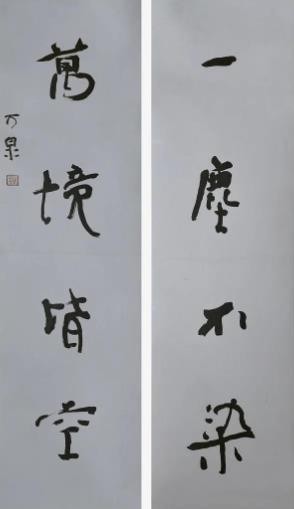 一塵不染
萬境皆空
万杲